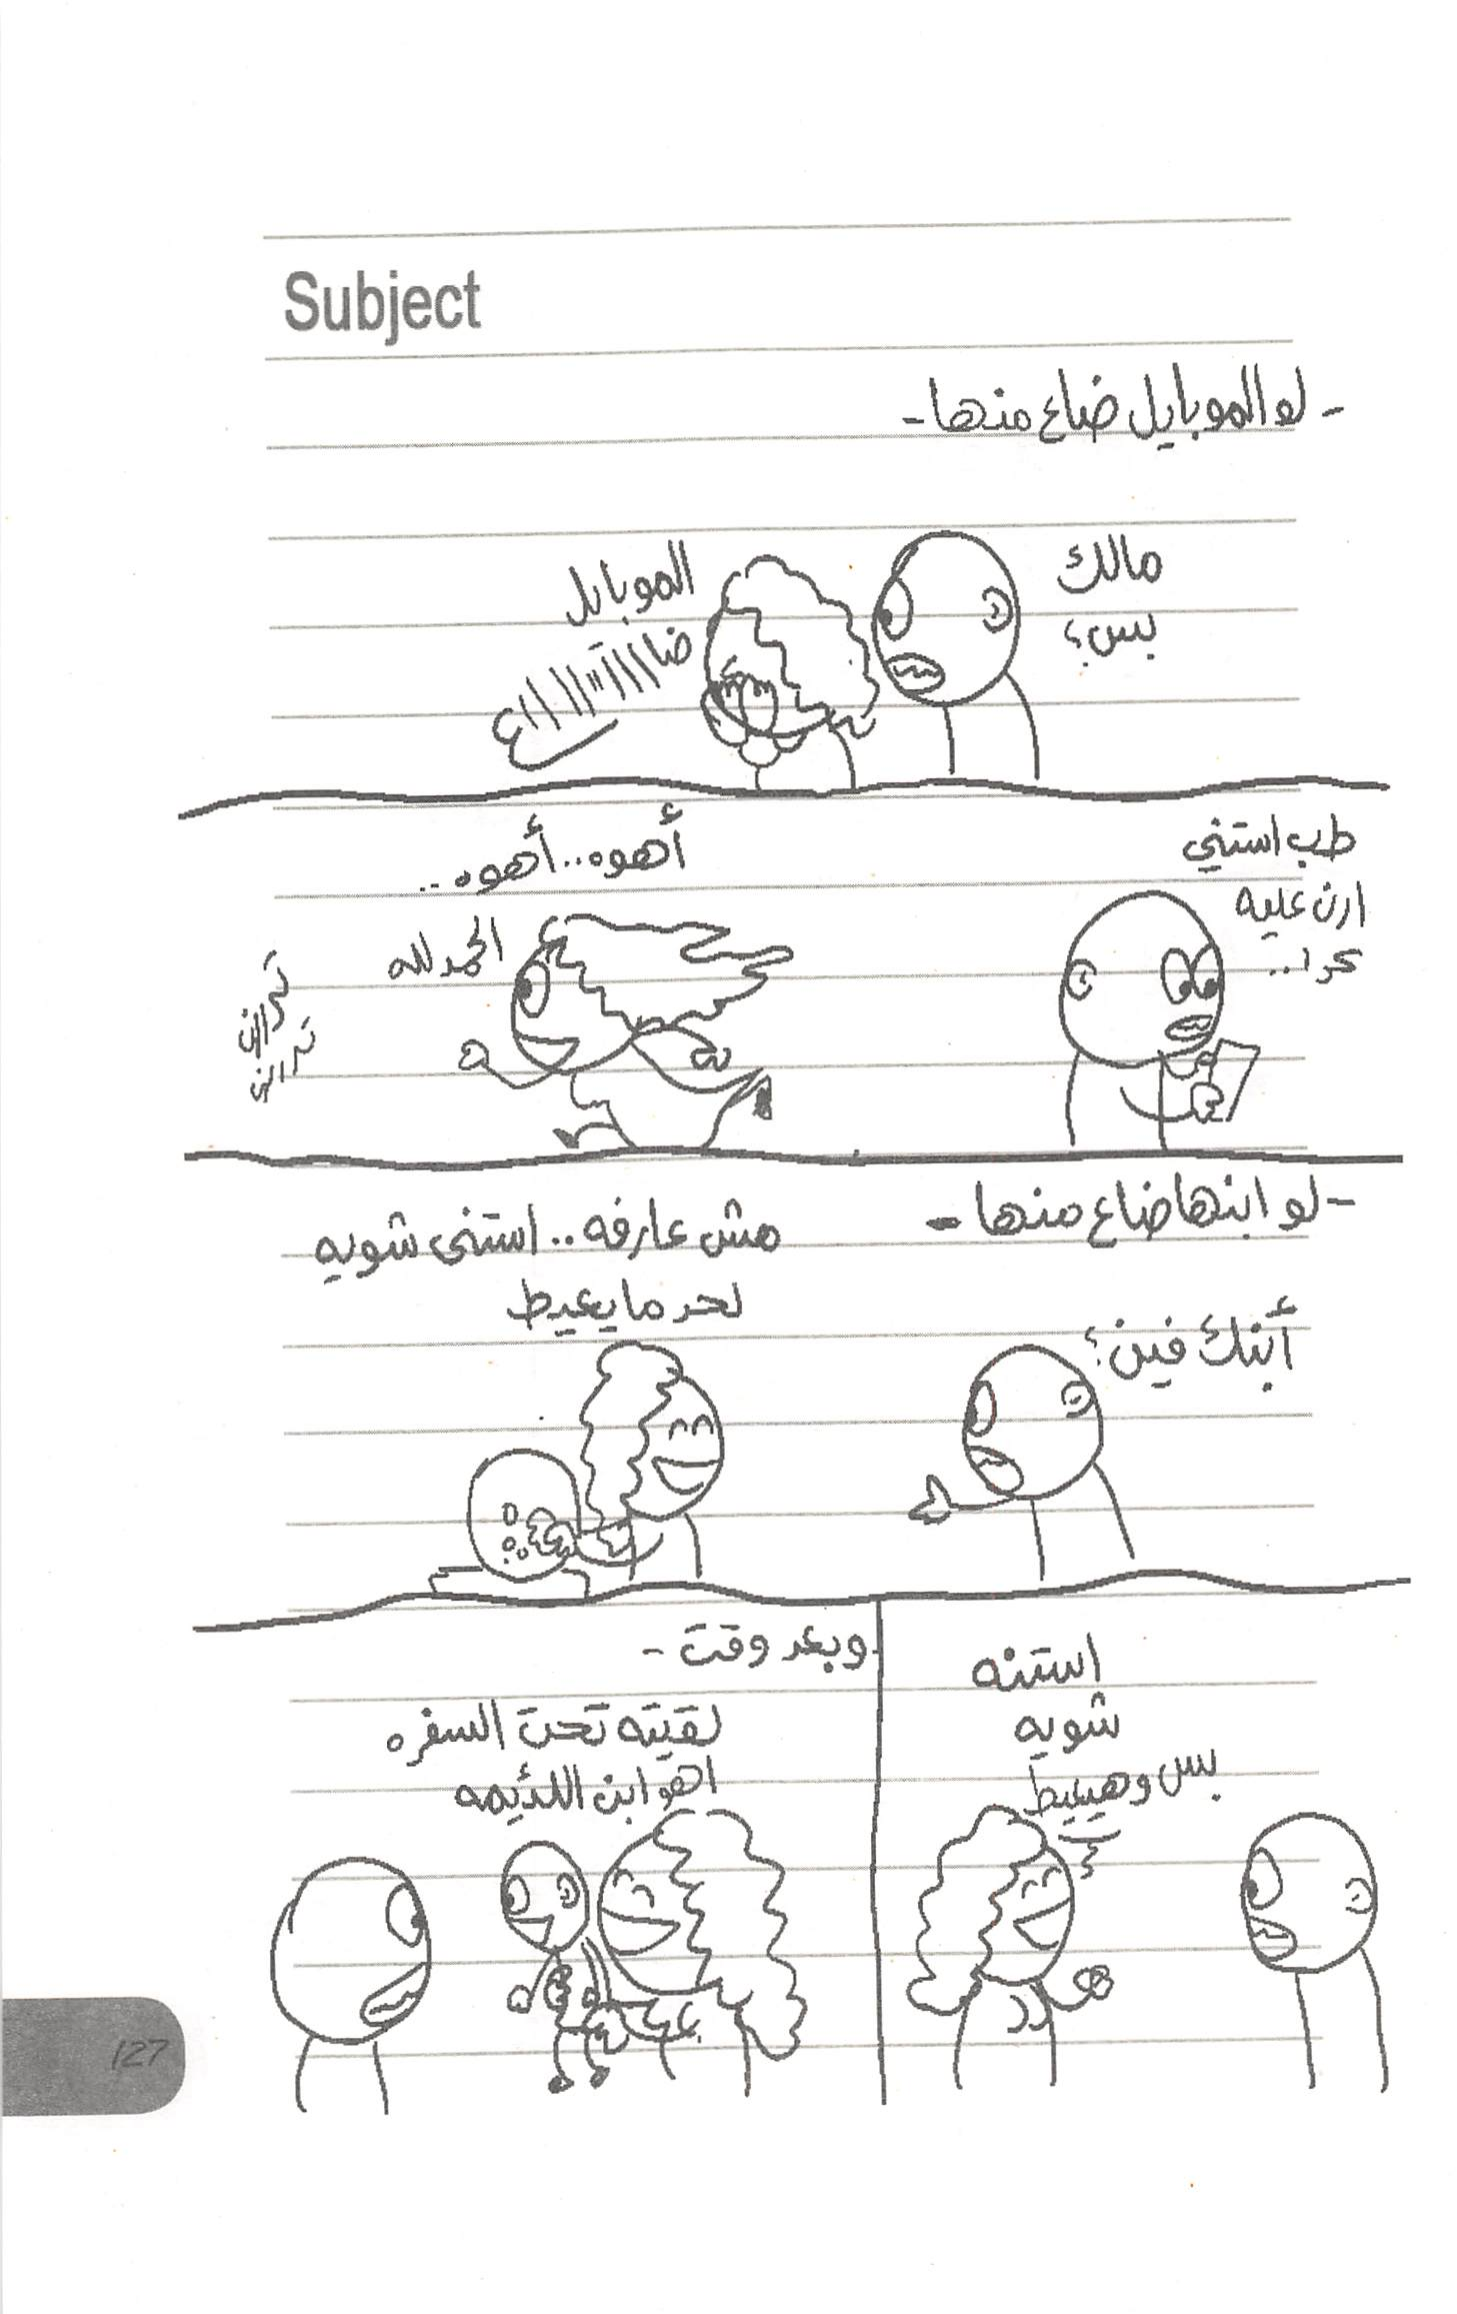 Subject
- لو الموبايل ضاع منها -
مالك
بس؟
الموبايل
طب استني
ارن عليه
أهوه.. أهوه..
الحمد لله
- لو ابنها ضاع منها -
أبنك فين؟
مش عارفه.. استنى شويه
لحد ما يعيط
استنه
شويه
بس وهيعيط
وبعد وقت -
لقيته تحت السفره
اهو ابن اللئيمه
127